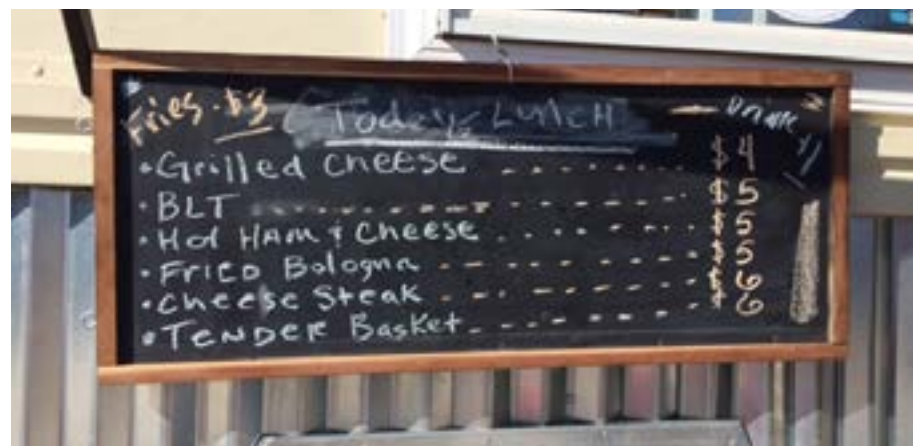 Fries - $3
Today's LUNCH
Drink
• Grilled Cheese - - - - - - - $4
• BLT - - - - - - - - - - - $5
• Hot HAM & Cheese - - - - - - - $5
• FRIED Bologna - - - - - - - - $5
• Cheese Steak - - - - - - - - $6
• TENDER Basket - - - - - - - $6